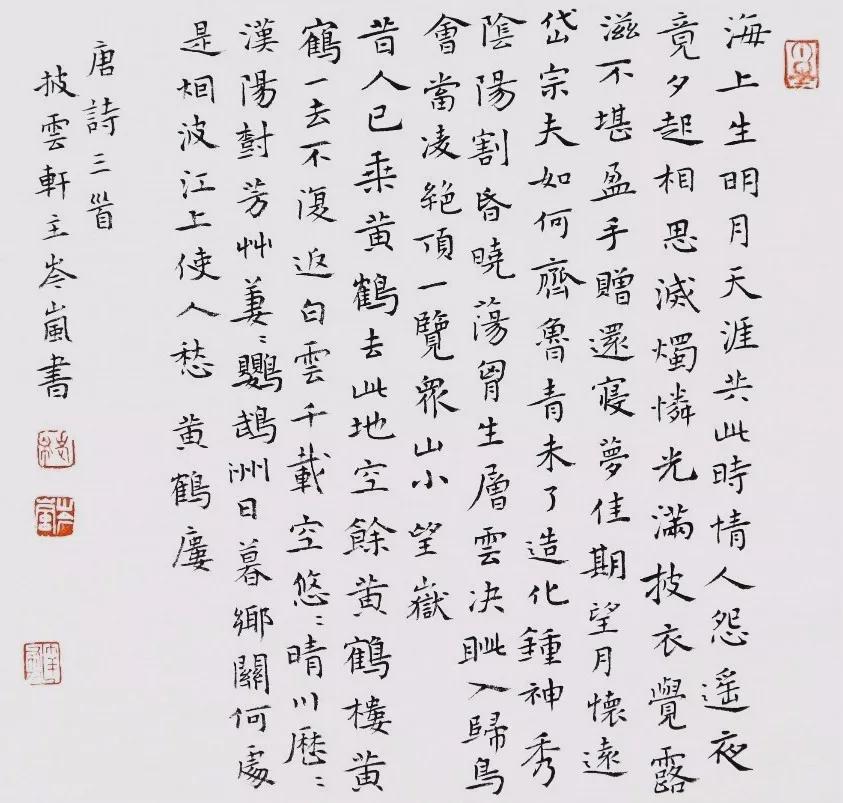 海上生明月天涯共此時情人怨遥夜
竟夕起相思滅燭憐光滿披衣覺露
滋不堪盈手贈還寢夢佳期望月懷遠
岱宗夫如何齊魯青未了造化鍾神秀
陰陽割昏曉蕩胷生層雲決眦入歸鳥
會當凌絕頂一覽衆山小望嶽
昔人已乘黄鶴去此地空餘黄鶴樓黄
鶴一去不復返白雲千載空悠:晴川歷:
漢陽對芳艸萋:鸚鵡洲日暮鄉關何處
是烟波江上使人愁 黄鶴樓
唐詩三首
披雲軒主岑嵐書